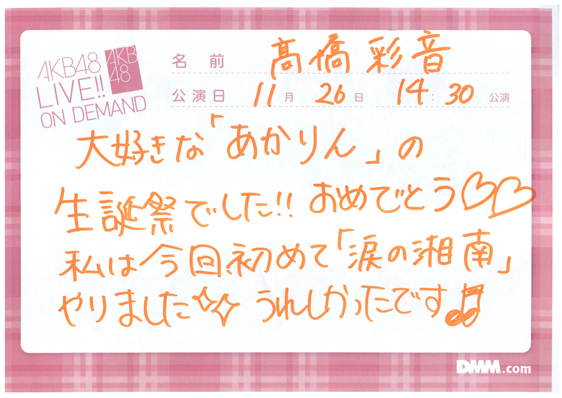 AKB48
LIVE!!
ON DEMAND
AKB
48
名前 髙橋彩音
公演日 11月26日 14:30公演
大好きな「あかりん」の
生誕祭でした!! おめでとう♡♡
私は今回、初めて「涙の湘南」
やりました☆☆ うれしかったです♫
DMM.com